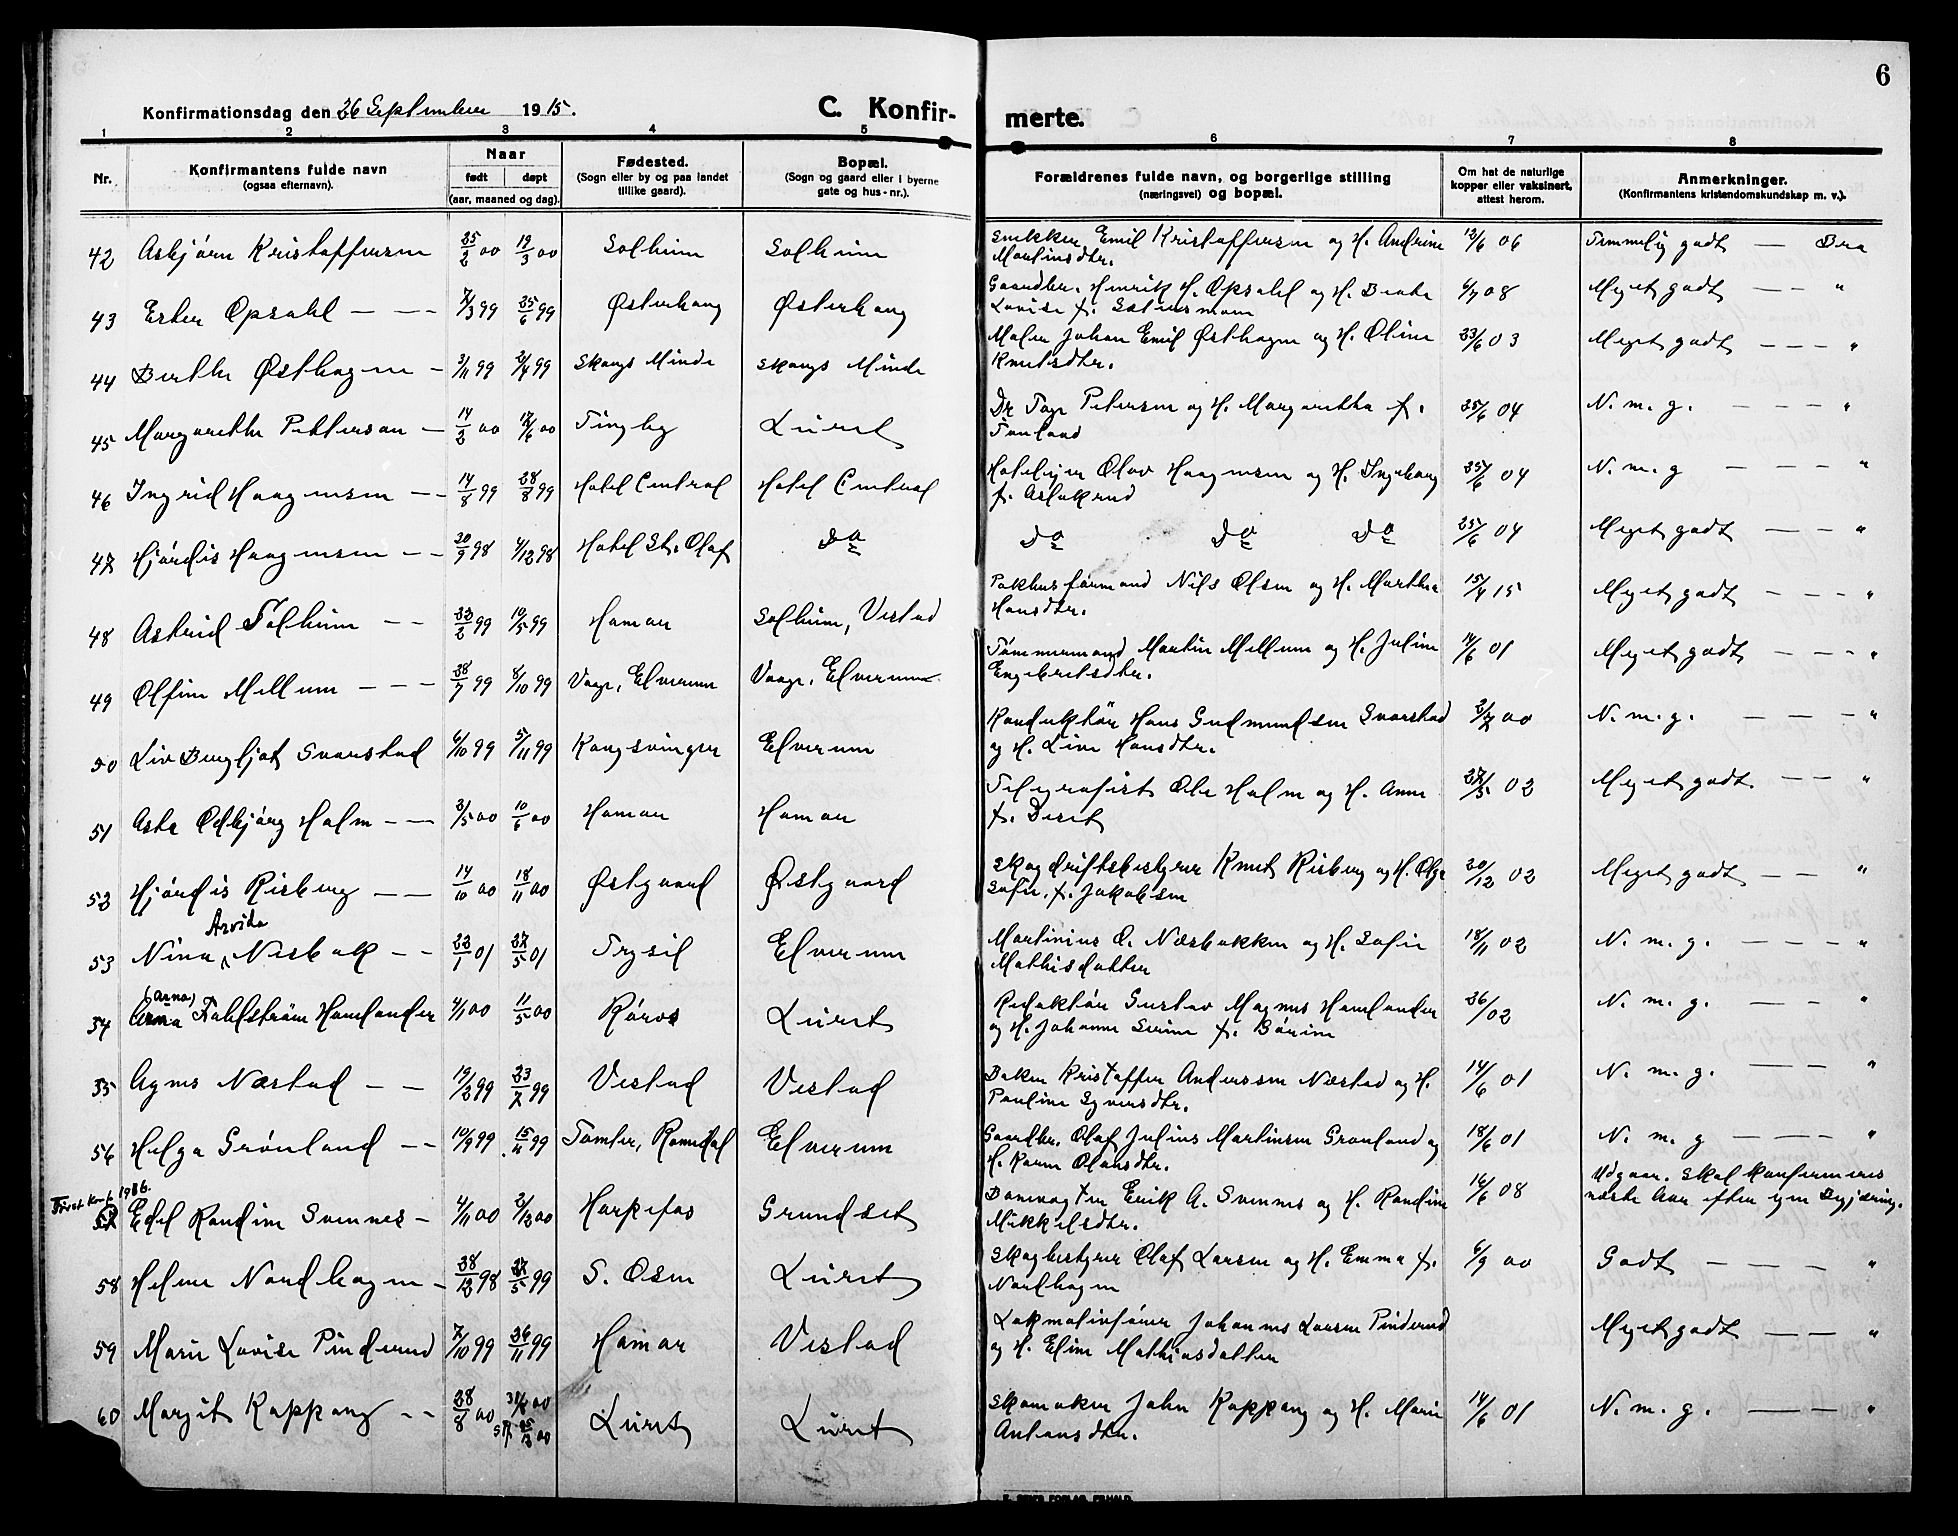 6
Konfirmationsdag den 26 September 1915.
C. Konfir- merte.
1 2 3 4 5 6 7 8
Nr.
Konfirmantens fulde navn
(ogsaa efternavn).
Naar
født døpt
(aar, maaned og dag).
Fødested.
(Sogn eller by og paa landet
tillike gaard).
Bopæl.
(Sogn og gaard eller i byerne
gate og hus-nr.).
Forældrenes fulde navn, og borgerlige stilling
(næringsvei) og bopæl.
Om hat de naturlige
kopper eller vaksinert,
attest herom.
Anmerkninger.
(Konfirmantens kristendomskundskap m. v.).
42 Asbjørn Kristoffersen 25/2 00 19/3 00 Solheim Solheim Snekker Emil Kristoffersen og H. Andrine 12/6 06 Temmelig godt — Bra
Martinsdtr.
43 Ester Opsahl — — — 7/3 99 25/6 99 Østerhaug Østerhaug Gaardbr. Henrik H. Opsahl og H. Beate 6/7 08 Meget godt — — "
Lovise f.
44 Berthe Østhagen — 3/11 99 2/4 99 Skougs Minde Skougs Minde Maler Johan Emil Østhagen og H. Oline 23/6 03 Meget godt — — — "
Knutsdtr.
45 Margarethe Petterson — 14/2 00 17/6 00 Tingby Lüret Dr Tage Petersen og H. Margaretha f. 25/6 04 N. m. g. — — — "
46 Ingrid Haagensen — — 14/8 99 28/8 99 Hotel Central Hotel Central Hoteleier Olav Haagensen og H. Ingeborg 25/6 04 N. m. g — — — "
f. Aslakrud
47 Hjørdis Haagensen — — 20/9 98 4/12 98 Hotel St. Olaf Do Do Do Do 25/6 04 Meget godt — — "
48 Astrid Solheim — — 22/2 99 10/5 99 Hamar Solheim, Vestad Pakhusformand Nils Olsen og H. Marthea 15/4 15 Meget godt — — — "
Hansdtr.
49 Olfine Mellum — — — 28/7 99 8/10 99 Vaage, Elverum Vaage, Elverum Tømmermand Martin Mellum og H. Juline 14/6 01 Meget godt — — — "
Engebretsdtr.
50 Liv Bergljot Svarstad 6/10 99 5/11 99 Kongsvinger Elverum Konduktør Hans Gudmundsen Svarstad 2/7 00 N. m. g. — — — "
og H. Live Hansdtr.
51 Aste Odbjørg Holm — — 3/5 00 10/6 00 Hamar Hamar Telegrafist Ole Holm og H. Anne 27/5 02 Meget godt. — — "
f.
52 Hjørdis Risberg — — 14/10 00 18/11 00 Østgaard Østgaard Skogdriftsbestyrer Knut Risberg og H. Olga 20/12 02 Meget godt — — "
Sofie, f. Jakobsen
Arvida
53 Nina Nesbak — — 22/1 01 27/5 01 Trysil Elverum Martinius O. Næsbakken og H. Sofie 18/11 02 N. m. g. — — — "
Mathisdatter
(Arna)
54 Arna Dahlstrøm Hamlander 4/1 00 11/5 00 Røros Lüret Redaktør Gustav Magnus Hamlander 26/02 N. m. g. — — "
og H. Johanne Serine f. Børine
55 Agnes Næstad — — 19/2 99 23/7 99 Vestad Vestad Baker Kristoffer Anderssen Næstad og H. 14/6 01 N. m. g. — — — "
Pauline Syversdtr.
56 Helga Grønland — — 10/9 99 15/4 99 Tomter, Romedal Elverum Gaardbr. Olaf Julius Martinsen Grønland og 18/6 01 N. m. g — — — "
H. Karen Olausdtr.
57 Edel Randine Svennes — 4/11 00 2/12 00 Harpefos Grundset Banevogter Erik A. Svennes og H. Randine 16/6 08 Udgaar. Skal konfirmeres
Mikkelsdtr. næste Aar efter egen Begjæring.
58 Helene Nordhagen — 28/12 98 27/5 99 S. Osen Lüret Skogbestyrer Olaf Larsen og H. Emma f. 6/9 00 Godt — — — "
Nordhagen
59 Marie Lovise Pinderud 7/10 99 26/11 99 Hamar Vestad Lokmotivfører Johannes Larsen Pinderud Meget godt — — "
og H. Eline Mathiasdatter
60 Margit Kappang — — 28/8 00 Lüret Lüret Skomaker John Kappang og H. Marie 14/6 01 N. m. g. — — "
Antonsdtr.